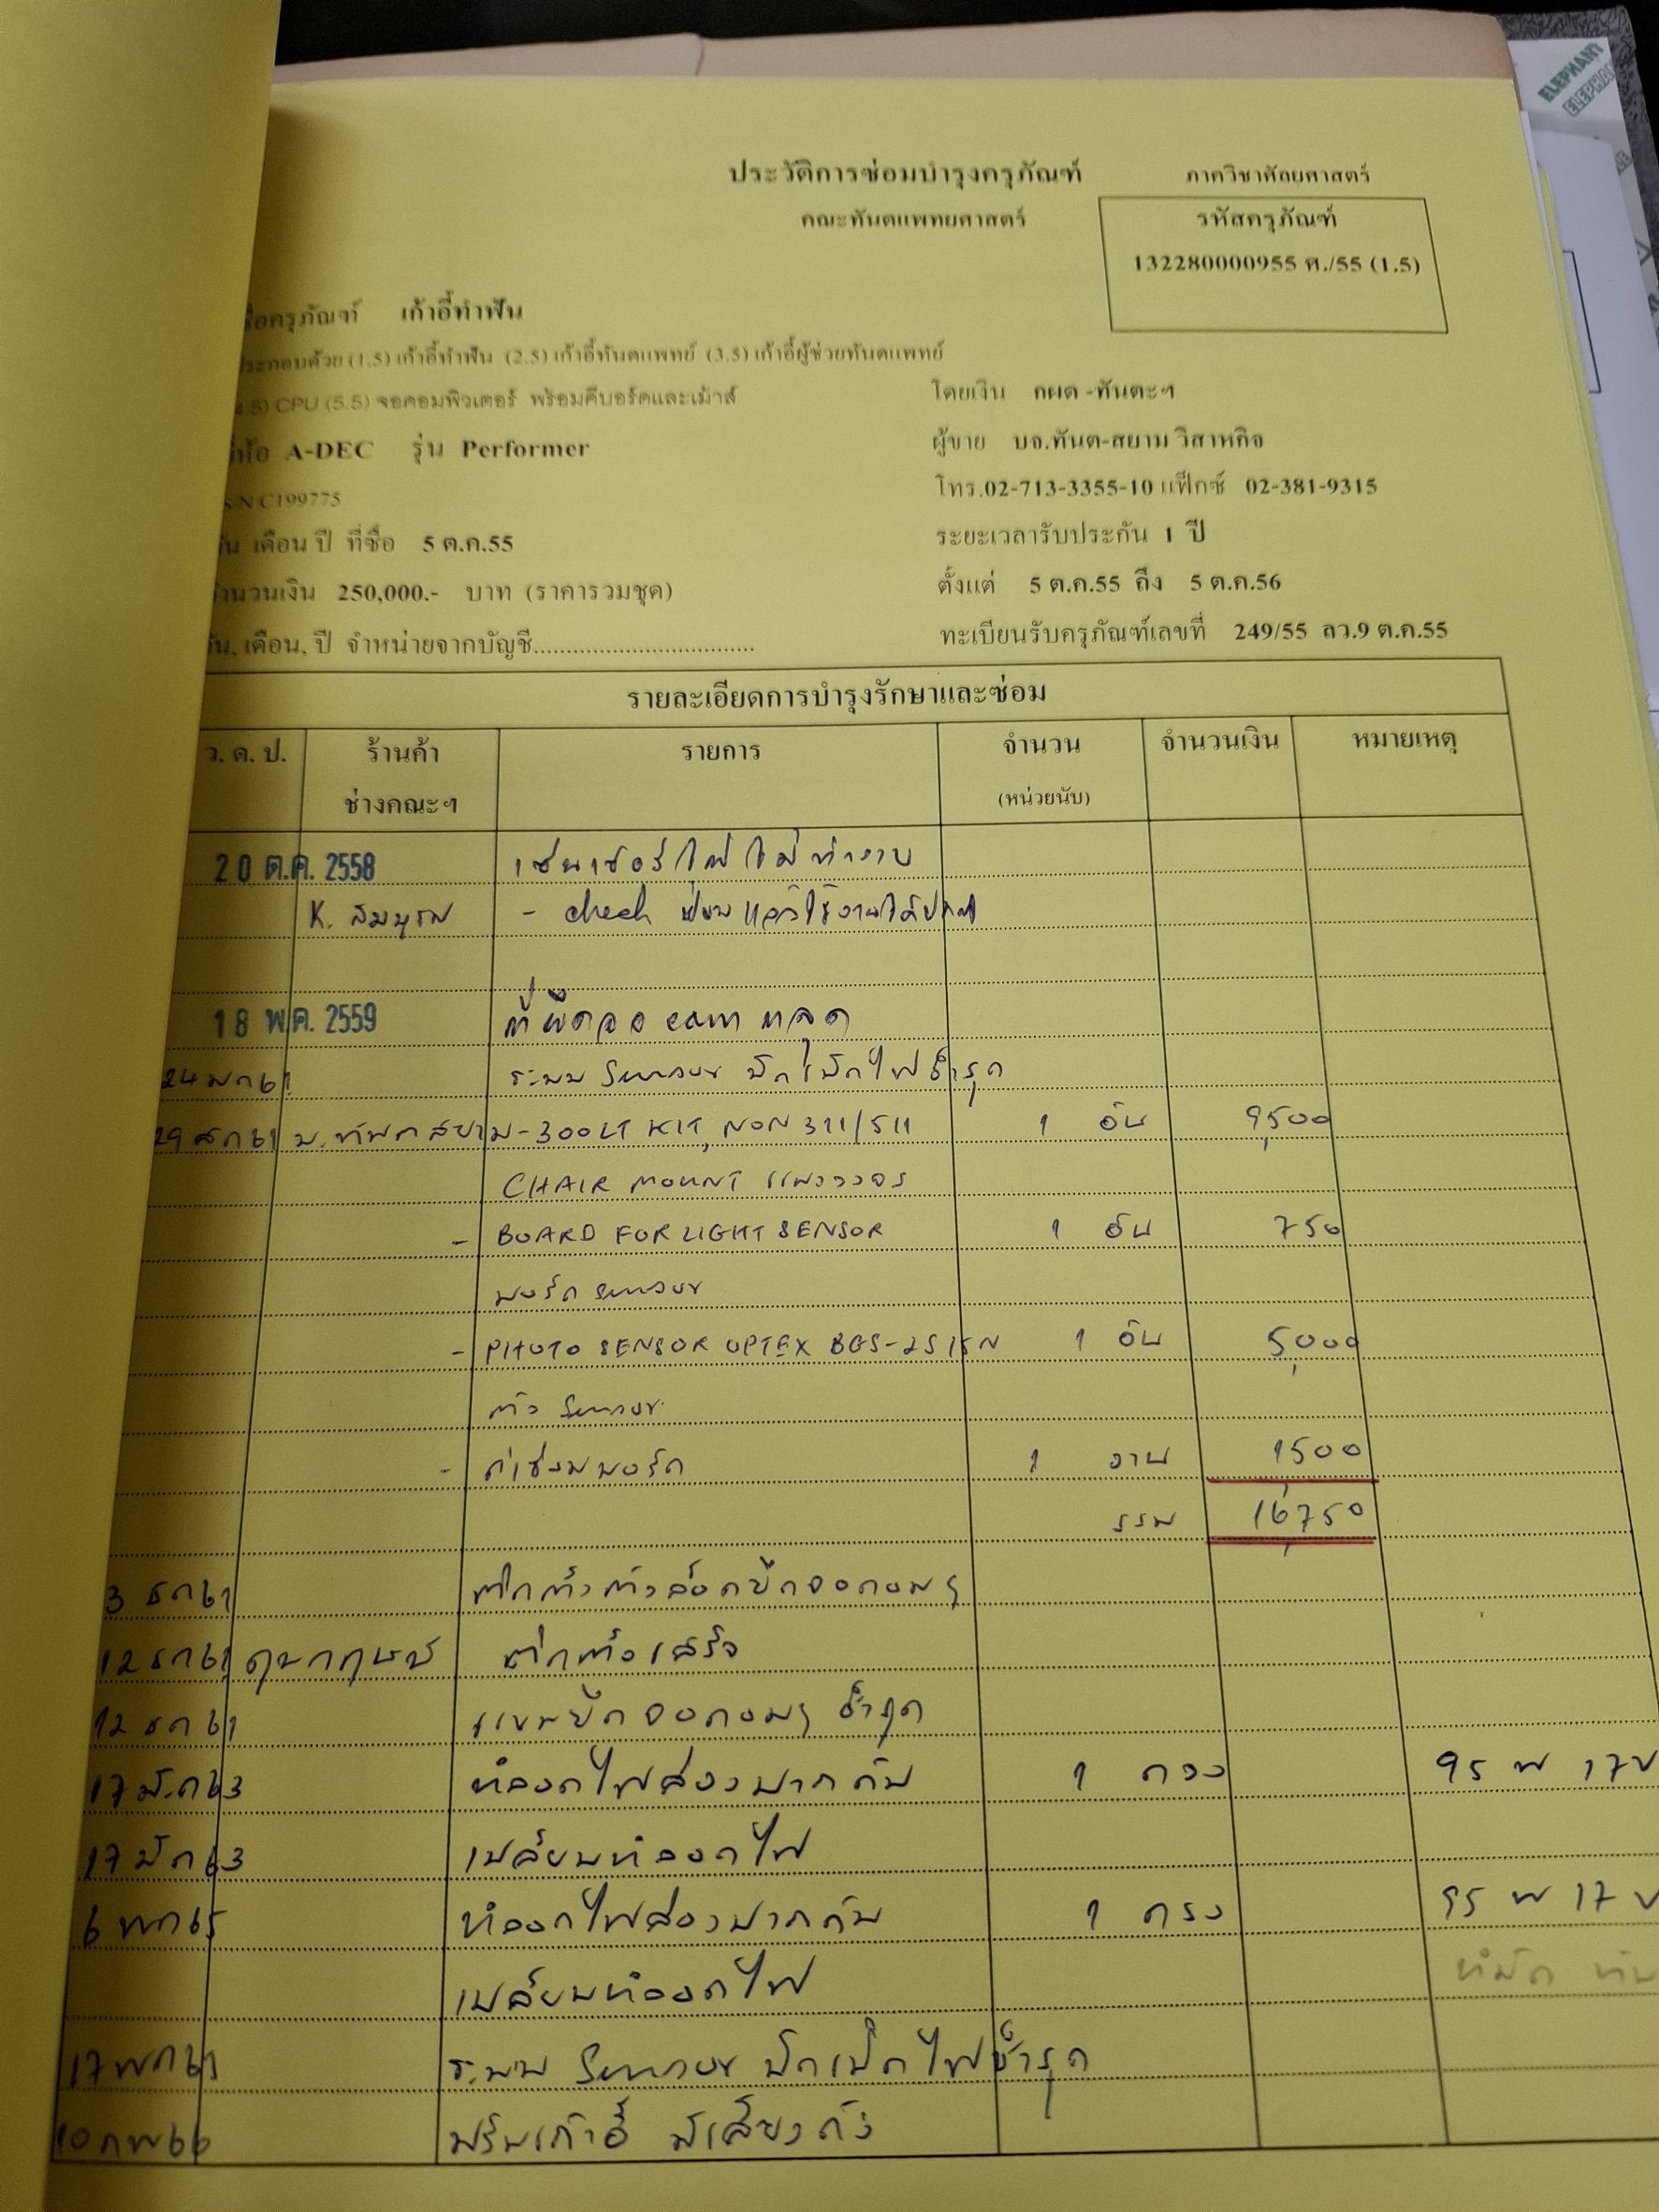 ELEPHANT
ELEPHA
ประวัติการซ่อมบำรุงครุภัณฑ์
ภาควิชาศัลยศาสตร์
คณะทันตแพทยศาสตร์
รหัสครุภัณฑ์
132280000955 ศ./55 (1.5)
ชื่อครุภัณฑ์ เก้าอี้ทำฟัน
ประกอบด้วย (1.5) เก้าอี้ทำฟัน (2.5) เก้าอี้ทันตแพทย์ (3.5) เก้าอี้ผู้ช่วยทันตแพทย์
4.5) CPU (5.5) จอคอมพิวเตอร์ พร้อมคีบอร์ดและเม้าส์
โดยเงิน กผด -ทันตะฯ
ยี่ห้อ A-DEC รุ่น Performer
ผู้ขาย บจ.ทันต-สยาม วิสาหกิจ
S/N C199775
โทร.02-713-3355-10 แฟ็กซ์ 02-381-9315
วัน เดือน ปี ที่ซื้อ 5 ต.ค.55
ระยะเวลารับประกัน 1 ปี
จำนวนเงิน 250,000.- บาท (ราคารวมชุด)
ตั้งแต่ 5 ต.ค.55 ถึง 5 ต.ค.56
วัน, เดือน, ปี จำหน่ายจากบัญชี..................................
ทะเบียนรับครุภัณฑ์เลขที่ 249/55 ลว.9 ต.ค.55
รายละเอียดการบำรุงรักษาและซ่อม
ว. ด. ป. ร้านค้า รายการ จำนวน จำนวนเงิน หมายเหตุ
ช่างคณะฯ (หน่วยนับ)
20 ต.ค. 2558 เซ็นเซอร์ไฟไม่ทำงาน
K. สมบูรณ์ - check ซ่อม แล้วใช้งานได้ปกติ
18 พ.ค. 2559 ที่ยึดจอ หลุด
24 มค 61 ระบบ Sensor ปิดเปิดไฟชำรุด
29 สค 61 บ.ทันตสยาม - 300LT KIT, NON 311/511 1 อัน 9,500
CHAIR MOUNT แผงวงจร
- BOARD FOR LIGHT SENSOR 1 อัน 750
บอร์ด Sensor
- PHOTO SENSOR OPTEX BGS-2S15N 1 อัน 5,000
ตัว Sensor
- ค่าซ่อมบอร์ด 1 งาน 1,500
รวม 16,750
3 ธค 61 ติดตั้งตัวล็อคยึดจอคอมฯ
12 ธค 61 ติดตั้งเสร็จ
12 ธค 61 แขนยึดจอคอมฯ ชำรุด
17 มีค 63 หลอดไฟส่องปากดับ 1 ดวง 95 W 17V
17 มีค 63 เปลี่ยนหลอดไฟ
6 พค 65 หลอดไฟส่องปากดับ 1 ดวง 95 W 17V
เปลี่ยนหลอดไฟ
ระบบ Sensor ปิดเปิดไฟชำรุด
10 กพ 66 ปรับเก้าอี้ มีเสียงดัง